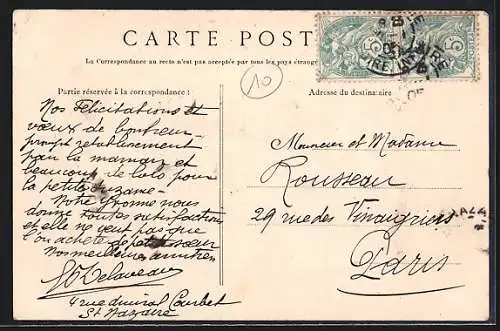 CARTE POST
La Correspondance au recto n'est pas acceptée par tous les pays étrange
10
Partie réservée à la correspondance :
Adresse du destinataire
Nos Félicitations et
vœux de bonheur
prompt retablissement
pour la maman et
beaucoup de lolo pour
la petite Suzanne
Notre Yvonne nous
donne toutes satisfactions
et elle ne veut pas que
l'on achete de petite sœur
Nos meilleures amitiés
Delaveau
4 rue amiral Courbet
St Nazaire
Monsieur et Madame
Rousseau
29 rue des Vinaigriers
Paris